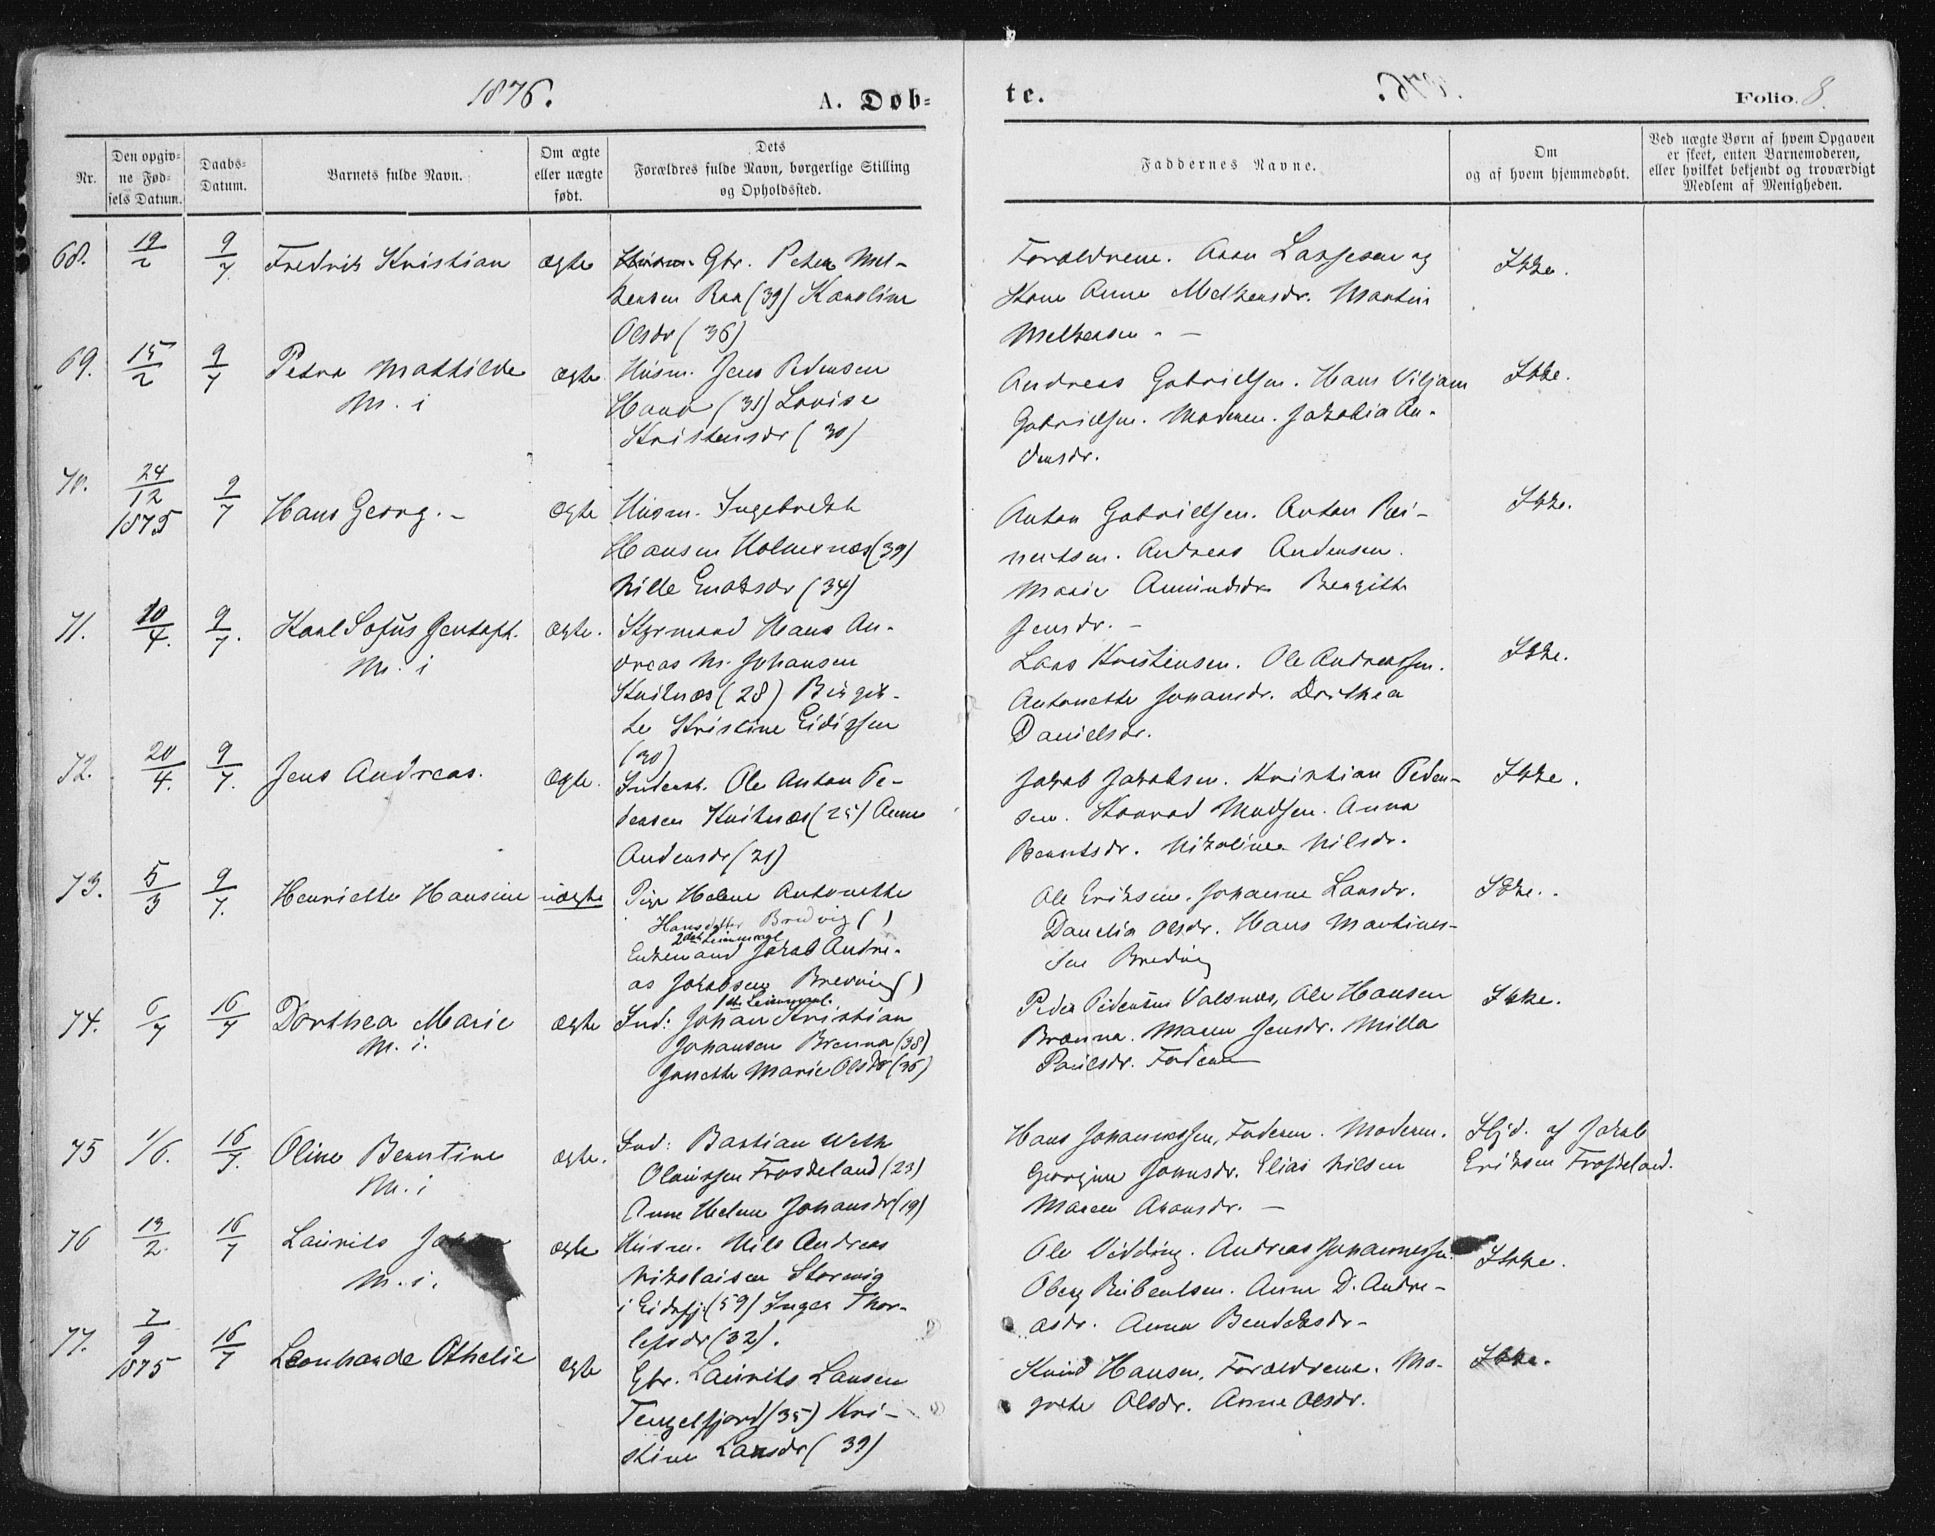 1876.
A. Døb-
te.
Folio. 8.
Nr.
Den opgiv-
ne Fød-
sels Datum.
Daabs-
Datum.
Barnets fulde Navn.
Om ægte
eller uægte
født.
Dets
Forældres fulde Navn, borgerlige Stilling
og Opholdssted.
Faddernes Navne.
Om
og af hvem hjemmedøbt.
Ved uægte Børn af hvem Opgaven
er skeet, enten Barnemoderen,
eller hvilket bekjendt og troværdigt
Medlem af Menigheden.
68. 19/2 9/7 Fredrik Kristian ægte Gbr. Peter Mel-
kersen Raa (39) Karoline
Olsdr (36)
Forældrene. Aron Lassesen og
Kone Anne Melkersdr. Martin
Melkersen - -
Ikke.
69. 15/2 9/7 Petra Mathilde
M. i
ægte. Husm. Jens Pedersen
Haav (31) Lovise
Kristensdr (30)
Andreas Gabrielsen. Hans Viljam
Gabrielsen. Moderen. Jakobia An-
dersdr.
Ikke.
70. 24/12 1875 9/7 Hans Georg. -
ægte Husm. Ingebrekt
Hansen Holmenæs (39)
Nille Enoksdr (34)
Anton Gabrielsen. Anton Rei-
nertsen. Andreas Andersen.
Marie Amundsdr Bergitte
Jensdr. -
Ikke.
71. 10/4. 9/7. Karl Sofus Gentoft.
M. i
ægte. Styrmand Hans An-
dreas M. Johansen
Kvitnæs (28) Birgit-
te Kristine Eidissen
(30)
Lars Kristensen. Ole Andreassen.
Antonette Johansdr. Dorthea
Danielsdr.
Ikke.
72. 20/4. 9/7. Jens Andreas.
ægte. Inderst. Ole Anton Pe-
dersen Kvitnæs (25) Anne
Andersdr (21)
Jakob Jakobsen. Kristian Peder-
sen. Konrad Madsen. Anna
Berntsdr. Nikoline Nilsdr.
Ikke.
73. 5/3 9/7. Henriette Hansine uægte
Pige Helene Antonette
Hansdatter Bredvig ( )
2det Leiermaal
Enkemand Jakob Andre-
as Jakobsen Bredvig ( )
1ste Leiermaal.
Ole Eriksen. Johanne Larsdr.
Danelia Olsdr. Hans Martines-
sen Bredvig
Ikke.
74. 6/7 16/7 Dorthea Marie
M. i.
ægte Ind: Johan Kristian
Johansen Brenna (38)
Janette Marie Olsdr (36)
Peder Pedersen Valsnæs, Ole Hansen
Brænna. Maren Jensdr. Milla
Paulsdr. Faderen
Ikke.
75 1/6. 16/7. Oline Berntine
M. i
ægte. Ind: Bastian Weth
Olaussen Froskeland (23)
Anne Helene Johansdr (19)
Hans Johannessen, Faderen. Moderen.
Georgine Jonasdr. Elias Nilsen
Maren Aronsdr. -
Hjd. af Jakob
Eriksen Froskeland.
76 13/2. 16/7 Laurits
M. i.
ægte Husm. Nils Andreas
Nikolaisen Storvig
i Eidsfj (59) Inger Thor-
lefsdr (32).
Ole Vidding. Andreas Johannessen.
Oberg Rubentsen. Anne D. Andre-
asdr. Anna Bendiksdr-
Ikke.
77. 7/9 1875 16/7 Leonharde Othelie
ægte Gbr. Laurits Larsen
Tengelfjord (35) Kri-
stine Larsdr (39)
Knud Hansen, Forældrene. Ma-
grete Olsdr. Anne Olsdr.
Ikke.